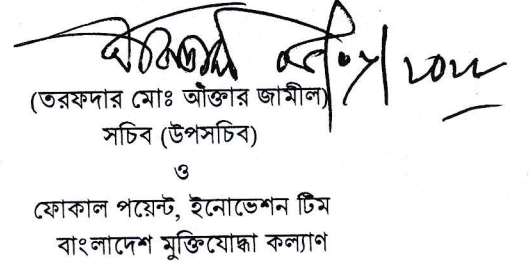 (তরফদার মোঃ আক্তার জামীল)
সচিব (উপসচিব)
ও
ফোকাল পয়েন্ট, ইনোভেশন টিম
বাংলাদেশ মুক্তিযোদ্ধা কল্যাণ